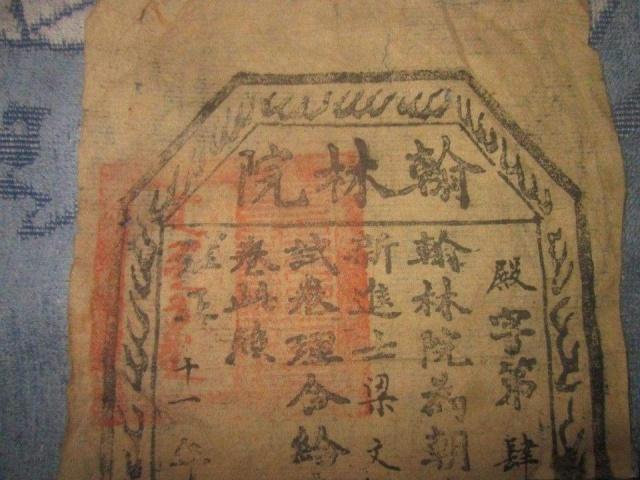 翰林院
殿字第肆
翰林院為朝
新進士梁文
試卷理合給
卷此照
十一年